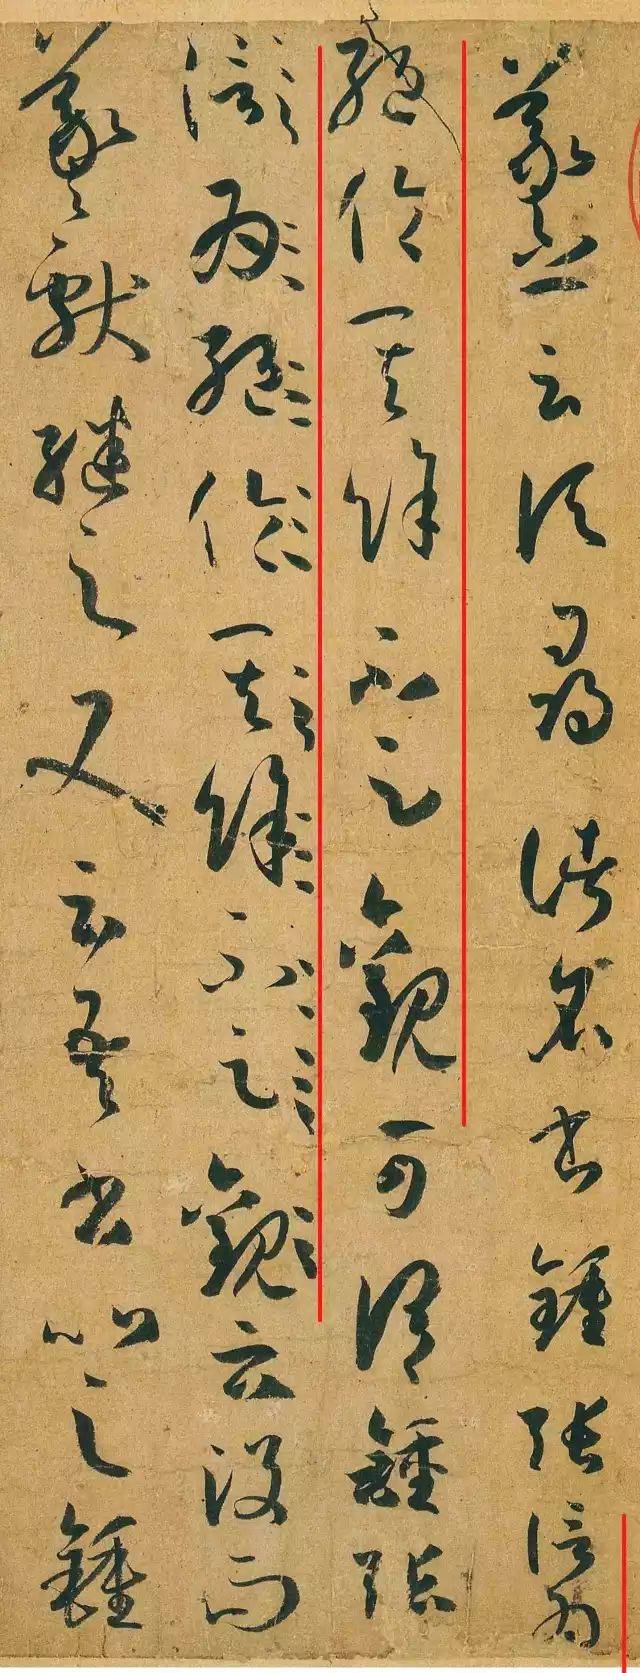 羲之云頃尋諸名書鍾張信為
絕倫其餘不足觀可謂鍾張
信為絕倫其餘不足觀云沒而
羲獻繼之又云吾書比之鍾